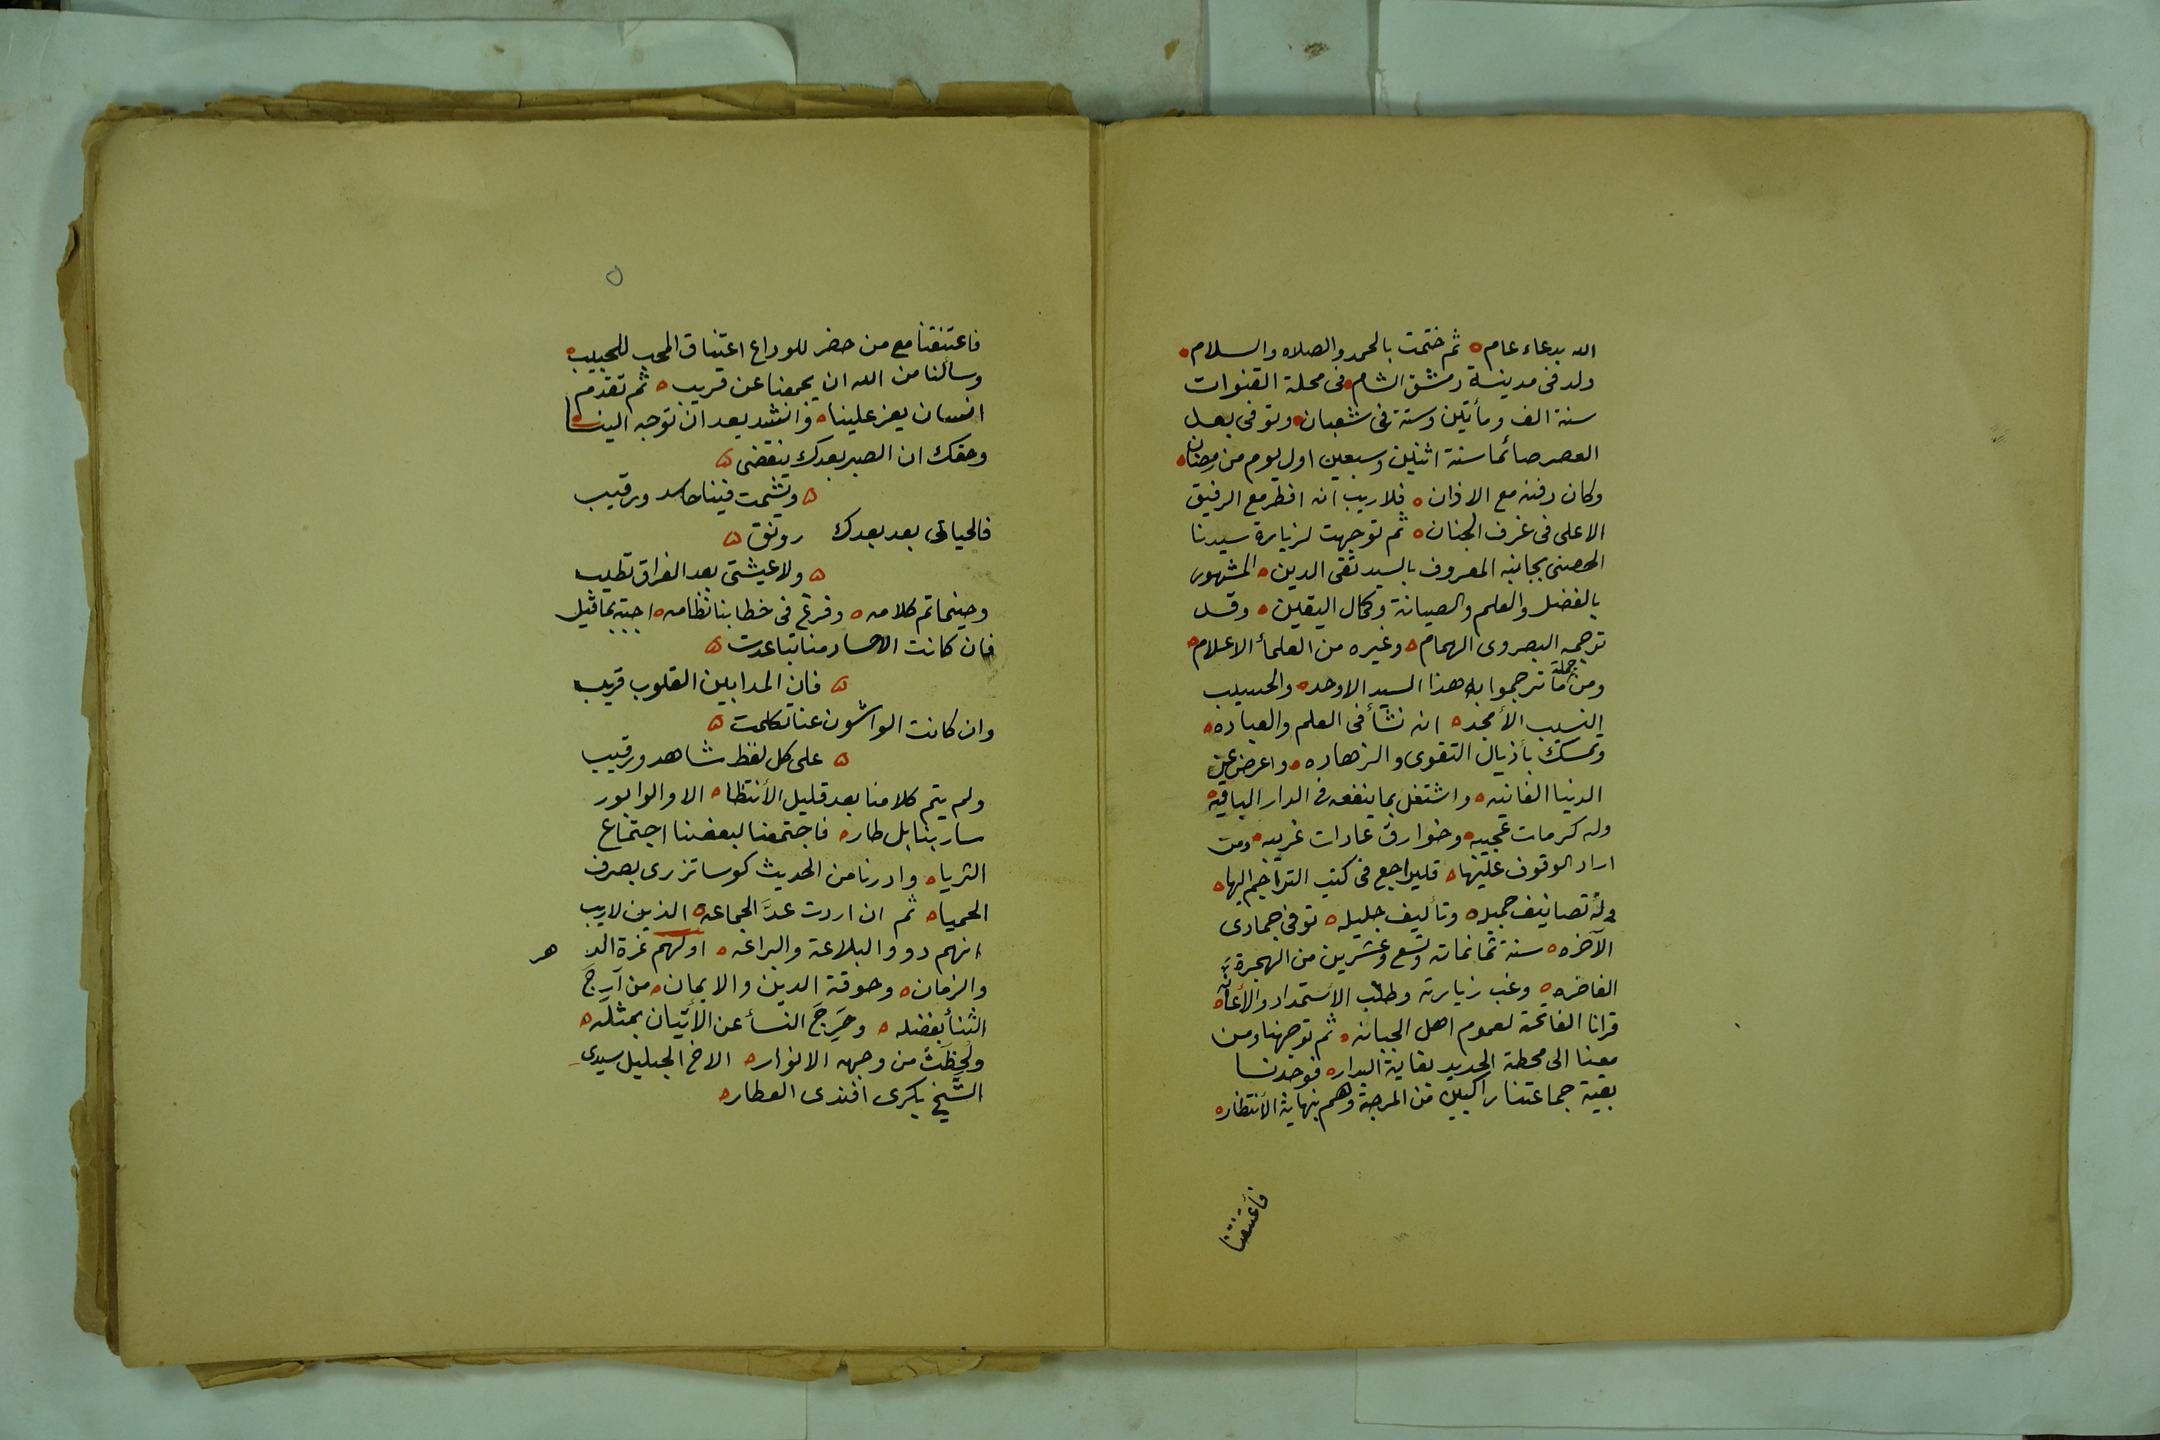 الله بدعاء عام ه ثم ختمت بالحمد والصلاه والسلام ه
ولد فى مدينة دمشق الشام ه فى محلة القنوات
سنة الف ومأتين وستة فى شعبان ه وتوفى بعد
العصر صائما سنة اثنين وسبعين اول يوم من رمضان ه
وكان دفنه مع الاذان ه فلا ريب انه افطر مع الرفيق
الاعلى فى غرف الجنان ه ثم توجهت لزيارة سيدنا
الحصنى بجانبه المعروف بالسيد تقى الدين ه المشهور
بالفضل والعلم والصيانة وكمال اليقين ه وقد
ترجمه البصروى الهمام ه وغيره من العلمأ الاعلام ه
ومن جملة ما ترجموا به هذا السيد الاوحد ه والحسيب
النسيب الأمجد ه انه نشأ فى العلم والعباده ه
وتمسك بأذيال التقوى والزهاده ه واعرض عن
الدنيا الفانيه ه واشتغل بما ينفعه فى الدار الباقيه ه
وله كرمات عجيبه ه وخوارق عادات غريبه ه ومن
اراد الوقوف عليها ه فليراجع فى كتب التراجم اليها ه
وله تصانيف جميله ه وتأليف جليله ه توفى جمادى
الآخره ه سنة ثمانمائة وتسع وعشرين من الهجرة
الفاخره ه وغب زيارته وطلب الأستمداد والأعانه ه
قرانا الفاتحة لعموم اهل الجبانه ه ثم توجهنا ومن
معنا الى محطة الحديد بغاية البدار ه فوجدنا
بقية جماعتنا راكبين من المرجة وهم بنهاية الأنتظار ه
فأعتنقنا
٥
فاعتنقنا مع من حضر للوداع اعتناق المحب للحبيب ه
وسألنا من الله ان يجمعنا عن قريب ه ثم تقدم
انسان يعز علينا ه وانشد بعد ان توجه الينا ه
وحقك ان الصبر بعدك ينقضى ه
ه وتشمت فينا حاسد ورقيب
فالحياتى بعد بعدك رونق ه
ه ولا عيشتى بعد الفراق تطيب
وحينما تم كلامه ه وفرغ فى خطابنا نظامه ه اجبته بما قيل
فان كانت الاجساد منا تباعدت ه
ه فان المدا بين القلوب قريب
وان كانت الواشون عنا تكلمت ه
ه على كل لفظ شاهد ورقيب
ولم يتم كلامنا بعد قليل الأنتظا ه الا والوابور
سار بنا بل طار ه فاجتمعنا لبعضنا اجتماع
الثريا ه وادرنا من الحديث كوسا تزرى بصرف
الحميا ه ثم ان اردت عدَّ الجماعة ه الذين لا ريب
انهم دوو البلاعة والبراعه ه اولهم غرة الد هر
والزمان ه وحوقة الدين والايمان ه من آرجَ
الثنأ بفضله ه وحَرِجَ النسأ عن الأتيان بمثله ه
ولُحِظَتْ من وجهه الانوار ه الاخ الجليل سيدى
الشيخ بكرى افندى العطار ه